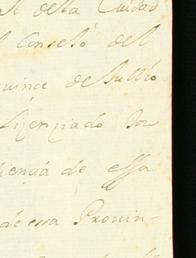 al della Ciudad
l Conseló del
quince de Jullio
Lizenziado Don
diencia de essa
de essa Provin-